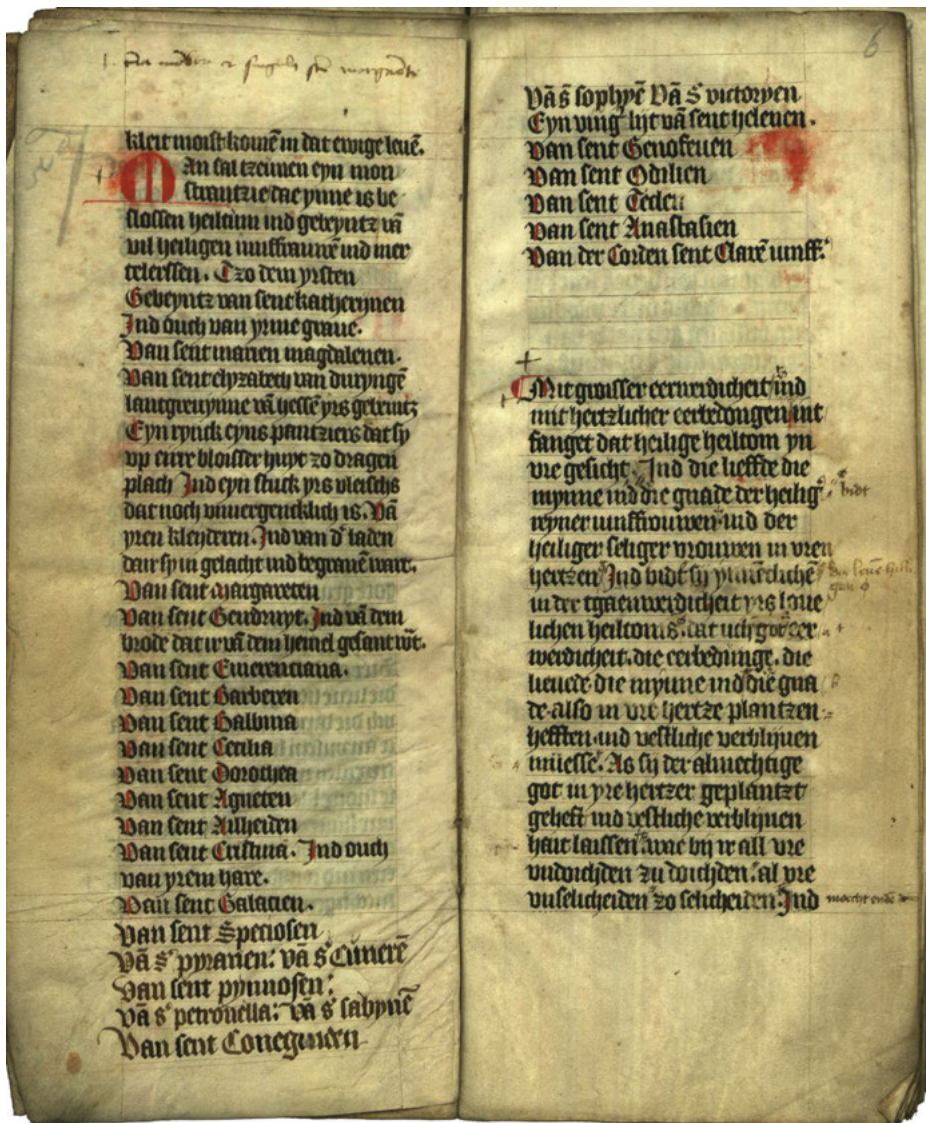 kleit moist komē in dat ewige leuē.
Man sal tzeunen eyn mon
strantzie dae ynne is be
slossen heiltum ind gebeyntz vā
vil heiligen iunffrauwē ind mer
telerssen. Tzo dem yrsten
Gebeyntz van sent katherynen
Ind ouch van yrme graue.
Van sent marien magdalenen.
Van sent elyzabeth van duryngē
lantgreuynne vā hessē yrs gebeintz
Eyn rynck eyns pantziers dat sy
vp eirre bloisser huyt zo dragen
plach Ind eyn stuck yrs vleischs
dat noch vnuergencklich is. Vā
yren kleyderen. Ind van d' laden
dair sy in gelacht ind begrauē wart.
Van sent margareten
Van sent Gerdruyt. Ind vā dem
brode dat ir vā dem hemel gesant wt.
Van sent Emerenciana.
Van sent Barberen
Van sent Balbina
Van sent Cecilia
Van sent Dorothea
Van sent Agneten
Van sent Ailheiden
Van sent Cristina. Ind ouch
van yrem hare.
Van sent Galacien.
Van sent Speciosen
Vā s' pyranen: vā s' Cunerē
Van sent pynnosen:
Vā s' petronella: Vā s' sabynē
Van sent Conegunden
6
Vā s' sophyē Vā s' victoryen
Eyn ving' lijt vā sent helenen.
Van sent Genofeuen
Van sent Odilien
Van sent Teclen
Van sent Anastasien
Van der Corden sent Clarē iunff.
Mit groisser eerwerdicheit ind
mit hertzlicher eerbedongen int
fanget dat heilige heiltom yn
vre gesicht. Ind die lieffde die
mynne ind die gnade der heilig' bidt
reyner iunffrouwen ind der
heiliger seliger vrouwen in vren
hertzen Ind bidt sy ynnēclichē
in der tgaenwerdicheit yrs loue
lichen heiltoms. dat uch got eer
werdicheit. die eerbedunge. die
lieuede die mynne ind die gna
de also in vre hertze plantzen
hefften ind vestliche verblijuen
müesse. As sij der almechtige
got in yre hertzer geplantzt
geheft ind vestliche verblijuen
hait laissen. wae bij ir all vre
vndoichden zu doichden. al vre
vnselicheiden zo selicheiden. Ind